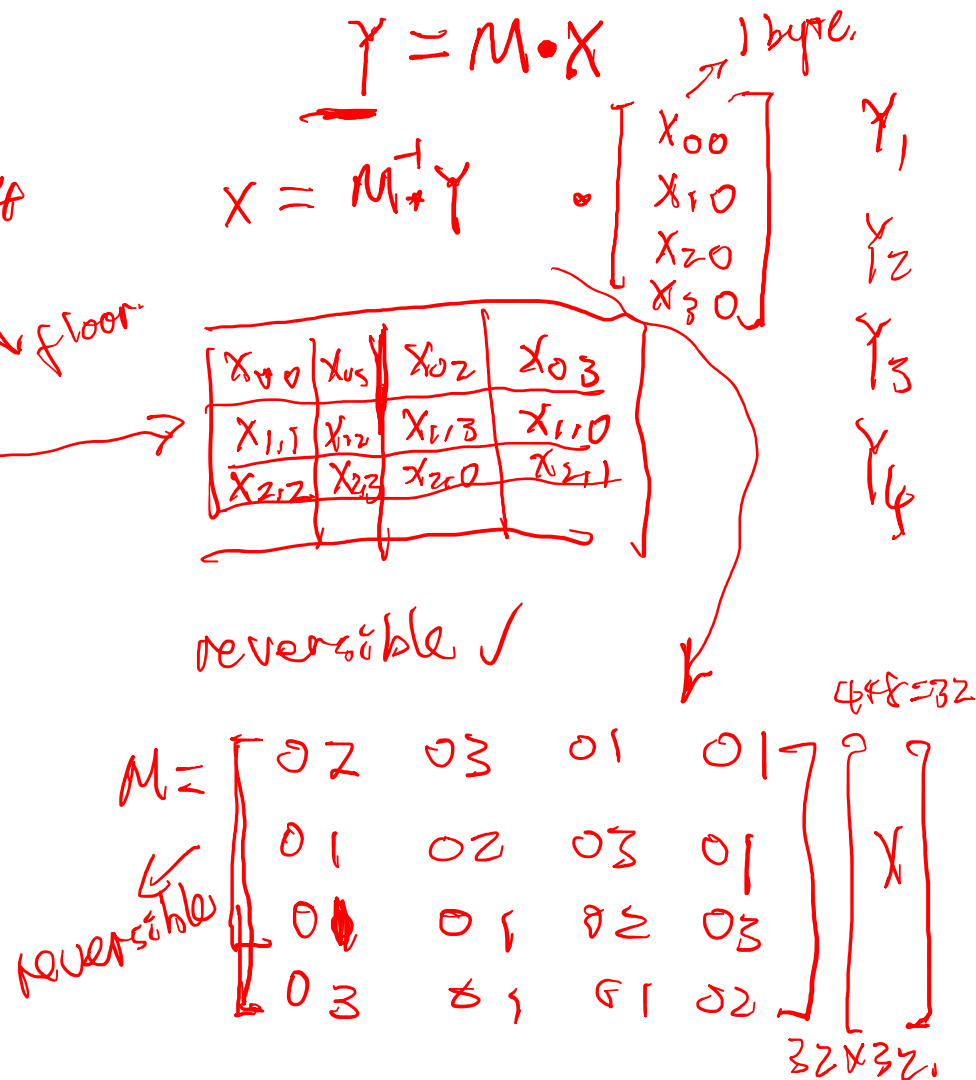 Y = M • X
1 byte.
X = M⁻¹ · Y
X00
X10
X20
X30
Y1
Y2
Y3
Y4
floor
X02 X03
X1,1 X1,3 X1,0
X2,2 X2,3 X2,0 X2,1
reversible ✓
4*8=32
M =
02 03 01 01
01 02 03 01
01 01 02 03
03 01 01 02
X
reversible
32×32.